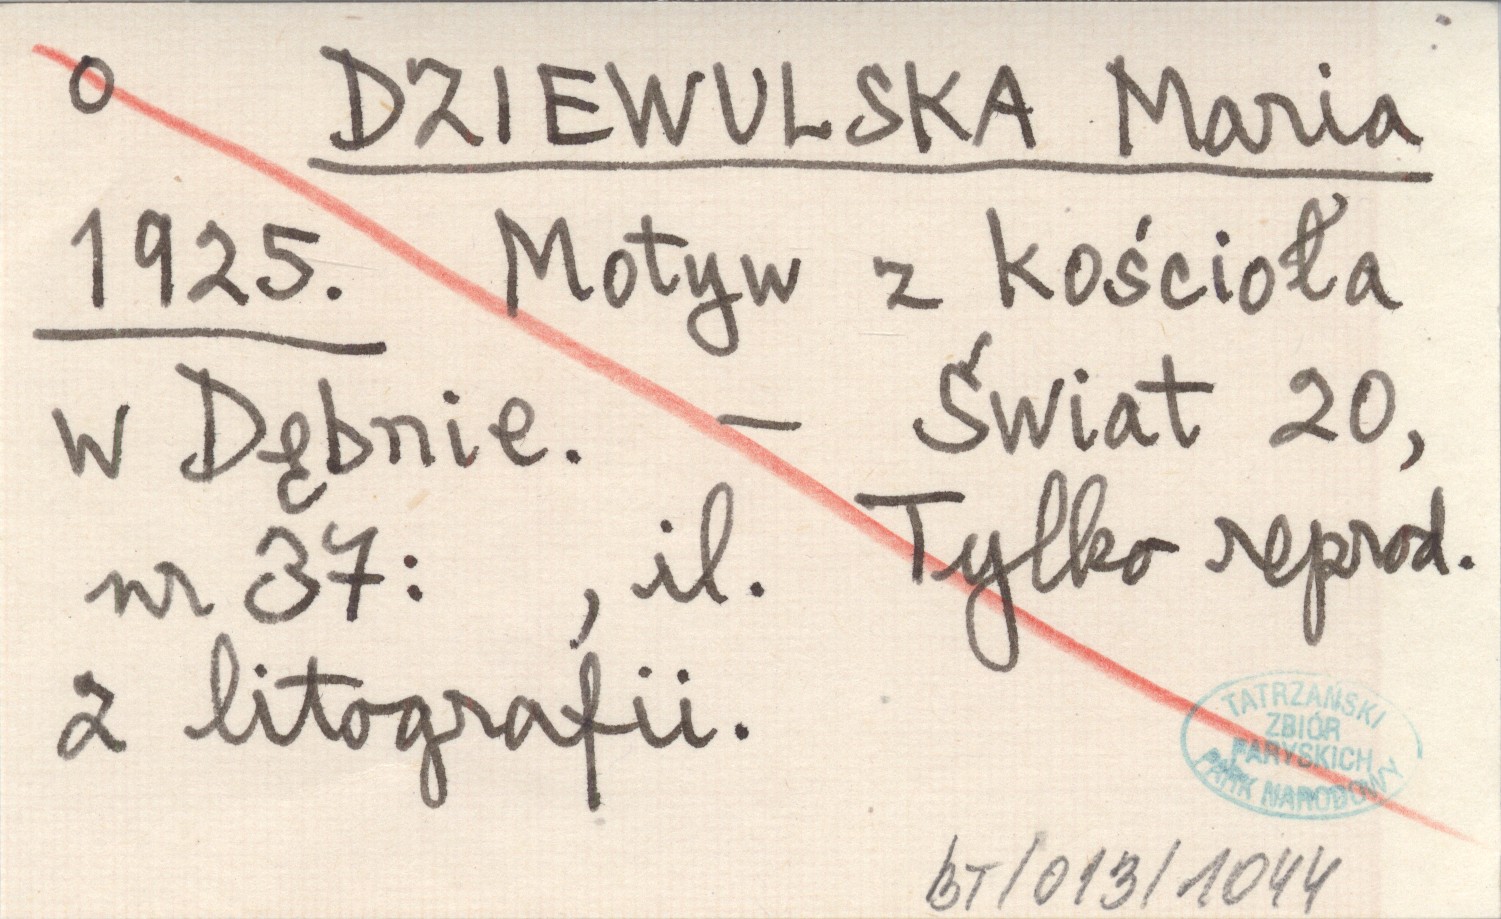 o DZIEWULSKA Maria
1925. Motyw z kościoła
w Dębnie. — Świat 20,
nr 37: , il. Tylko reprod.
z litografii.
TATRZAŃSKI
ZBIÓR
PARYSKICH
PARK NARODOWY
BT/013/1044